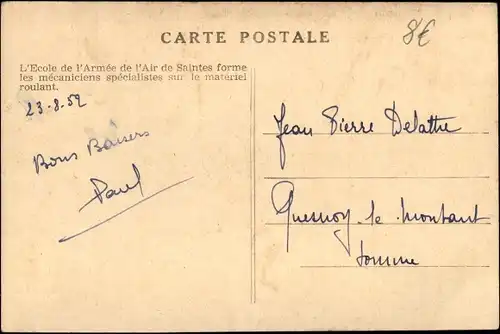 CARTE POSTALE
8€
L'Ecole de l'Armée de l'Air de Saintes forme
les mécaniciens spécialistes sur le matériel
roulant.
23-8-52
Bons Baisers
Paul
Jean Pierre Delattre
Quesnoy le montant
Somme